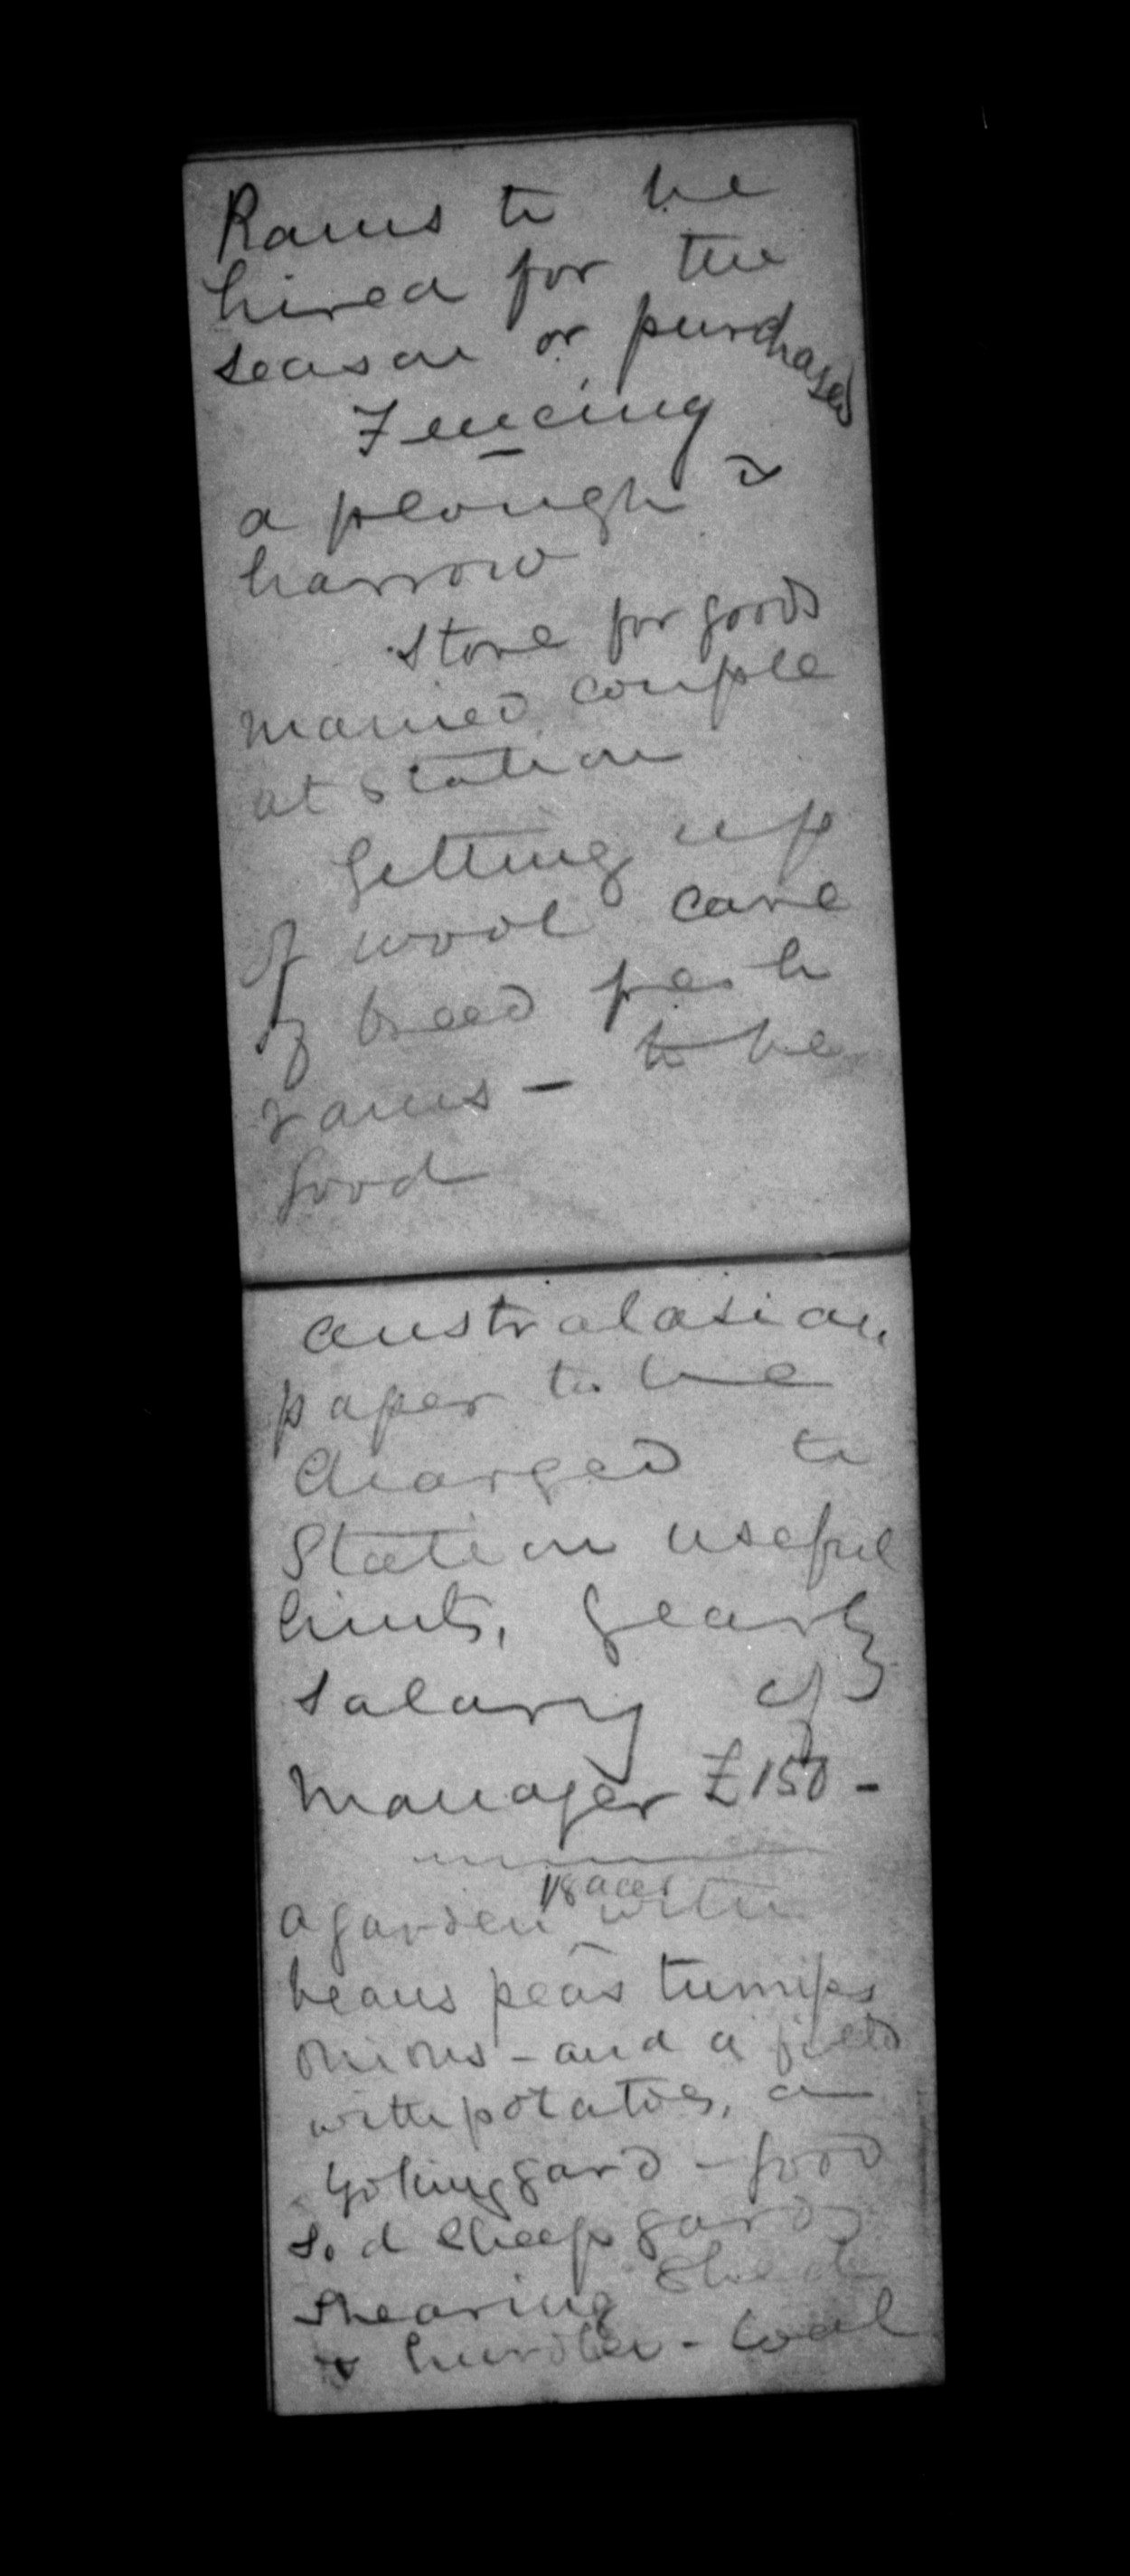 Rams to be
hired for the
season or purchased
Fencing
a plough &
harrow
Store for goods
married couple
at station
Getting up
of wool care
of breed fresh
rams – to be
Good
Australasian
paper to be
charged to
Station useful
hints, yearly
salary of
Manager £150 –
1/8 acre
a garden with
beans peas turnips
onions – and a field
with potatoes, a
yard – good
sod sheep yards
Shearing shed
& hurdles – coal